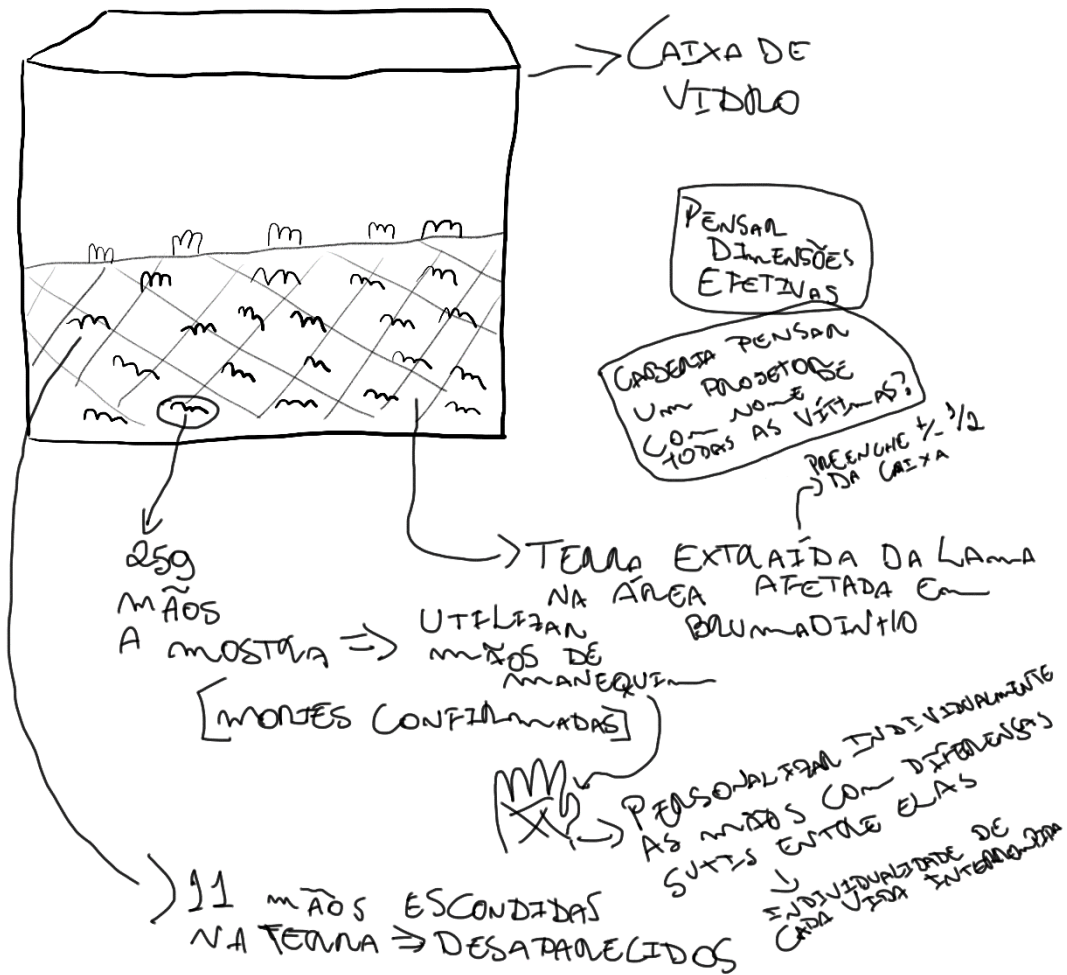 CAIXA DE
VIDRO
PENSAR
DIMENSÕES
EFETIVAS
CABERIA PENSAR
UM PROJETOR DE
COM NOME
TODAS AS VÍTIMAS?
PREENCHE +/- 1/2
DA CAIXA
TERRA EXTRAÍDA DA LAMA
NA ÁREA AFETADA EM
BRUMADINHO
259
MÃOS
A MOSTRA => UTILIZAR
MÃOS DE
MANEQUIM
[MORTES CONFIRMADAS]
PERSONALIZAR INDIVIDUALMENTE
AS MÃOS COM DIFERENSAS
SUTIS ENTRE ELAS
INDIVIDUALIDADE DE
CADA VIDA INTERROMPIDA
11 MÃOS ESCONDIDAS
NA TERRA => DESAPARECIDOS